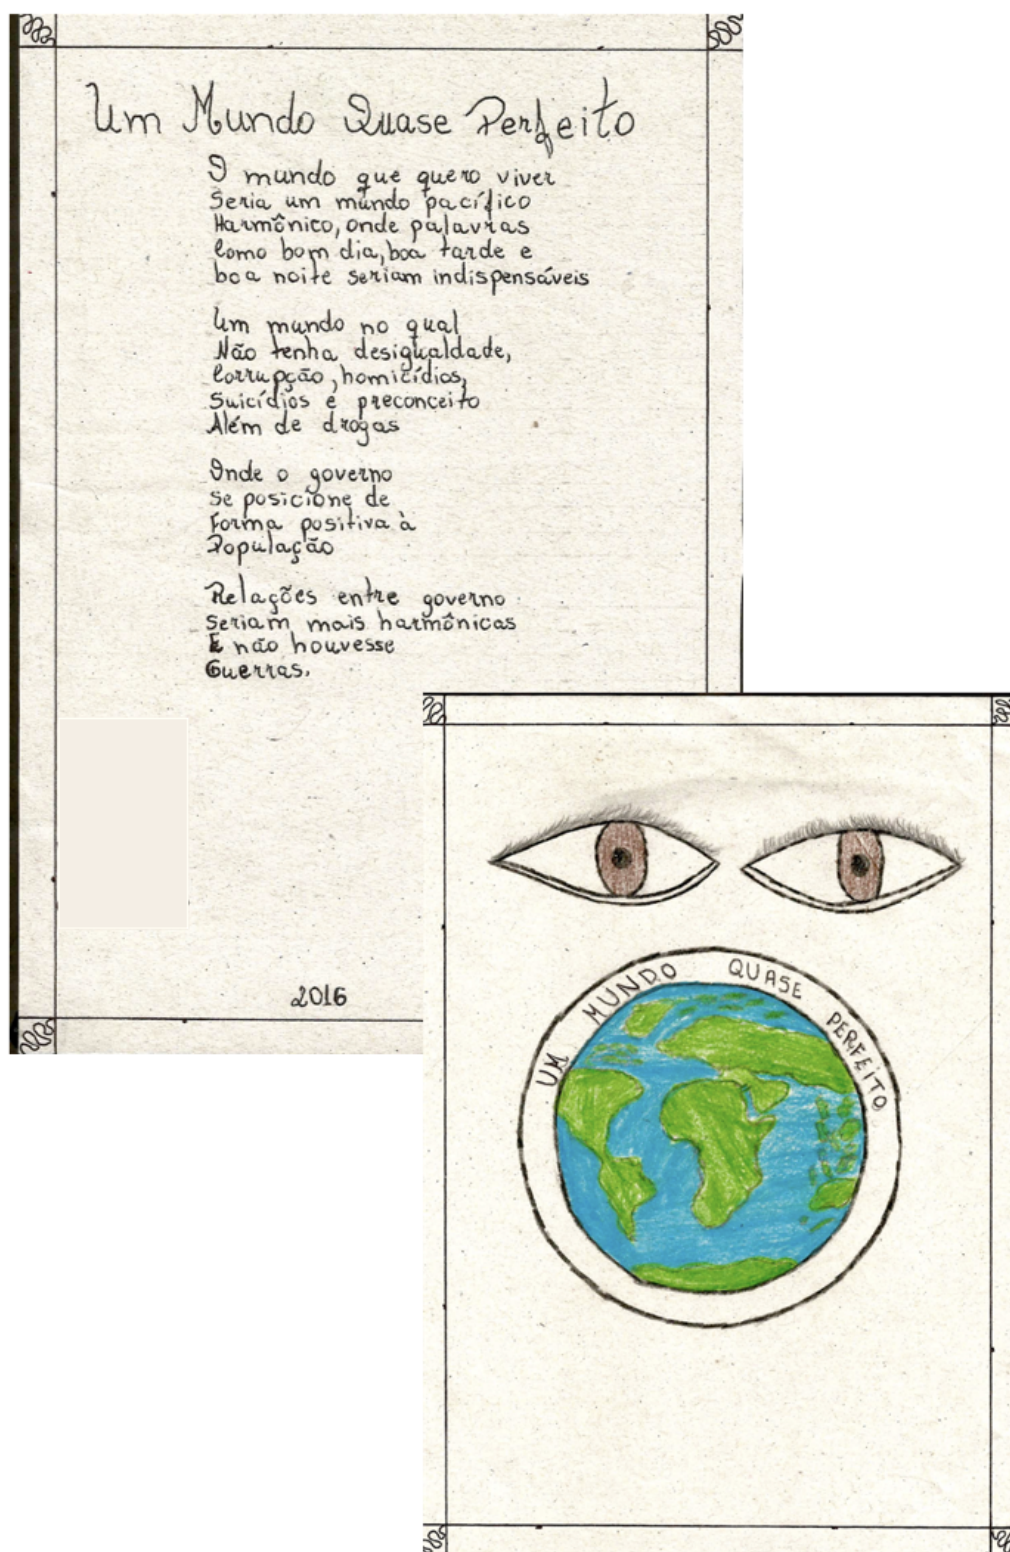 Um Mundo Quase Perfeito
O mundo que quero viver
Seria um mundo pacífico
Harmônico, onde palavras
Como bom dia, boa tarde e
boa noite seriam indispensáveis
Um mundo no qual
Não tenha desigualdade,
Corrupção, homicídios,
Suicídios e preconceito
Além de drogas
Onde o governo
Se posicione de
Forma positiva à
População
Relações entre governo
Seriam mais harmônicas
E não houvesse
Guerras.
2016
UM MUNDO QUASE PERFEITO